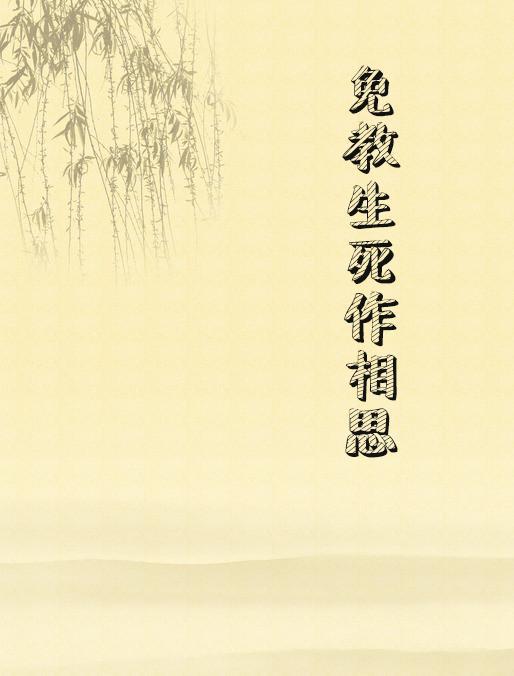 免教生死作相思